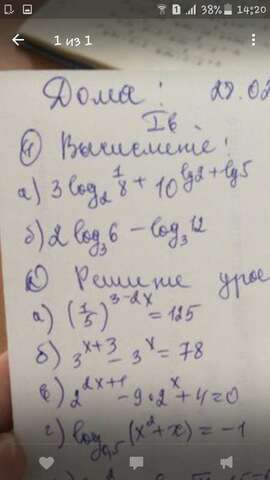 38% 14:20
1 из 1
Дома: 28.02
I в.
① Вычислите:
а) 3 log₂ 1/8 + 10^(lg2+lg5)
б) 2 log₃6 − log₃12
② Решите урав
а) (1/5)^(3−2x) = 125
б) 3^(x+3) − 3^x = 78
в) 2^(2x+1) − 9·2^x + 4 = 0
г) log₀,₅(x²+x) = −1